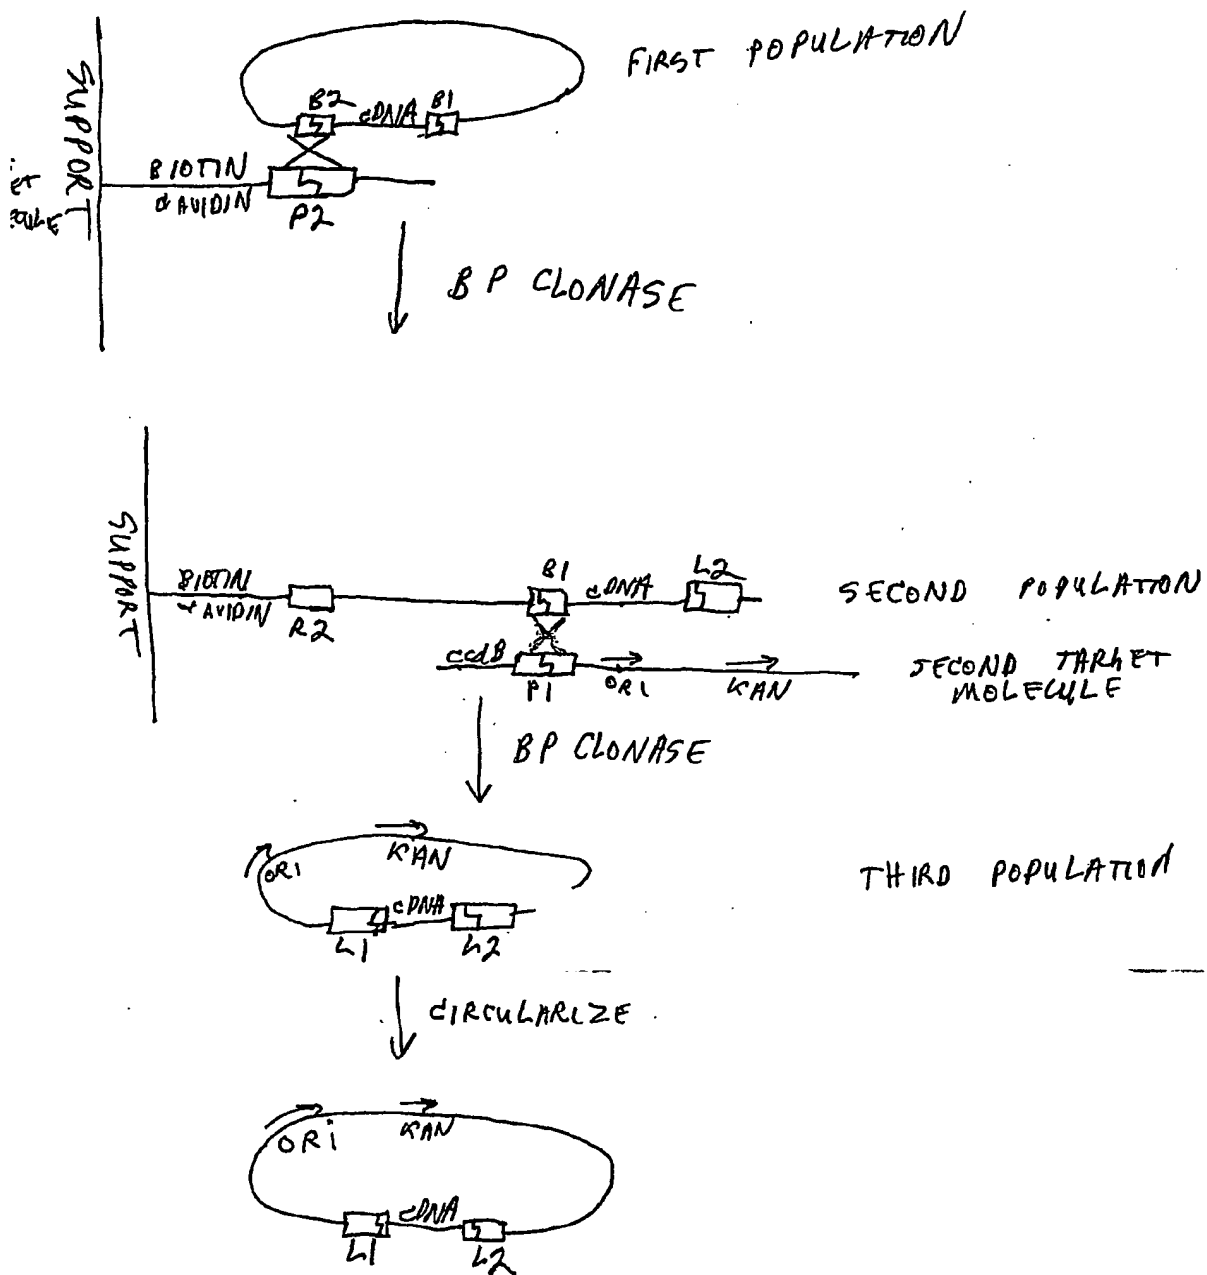 FIRST POPULATION
SUPPORT
B2
cDNA
B1
BIOTIN
AVIDIN
P2
BP CLONASE
SUPPORT
BIOTIN
AVIDIN
R2
B1
cDNA
L2
SECOND POPULATION
ccdB
P1
ORI
KAN
SECOND TARGET
MOLECULE
BP CLONASE
ORI
KAN
cDNA
L1
L2
THIRD POPULATION
CIRCULARIZE
ORi
KAN
cDNA
L1
L2